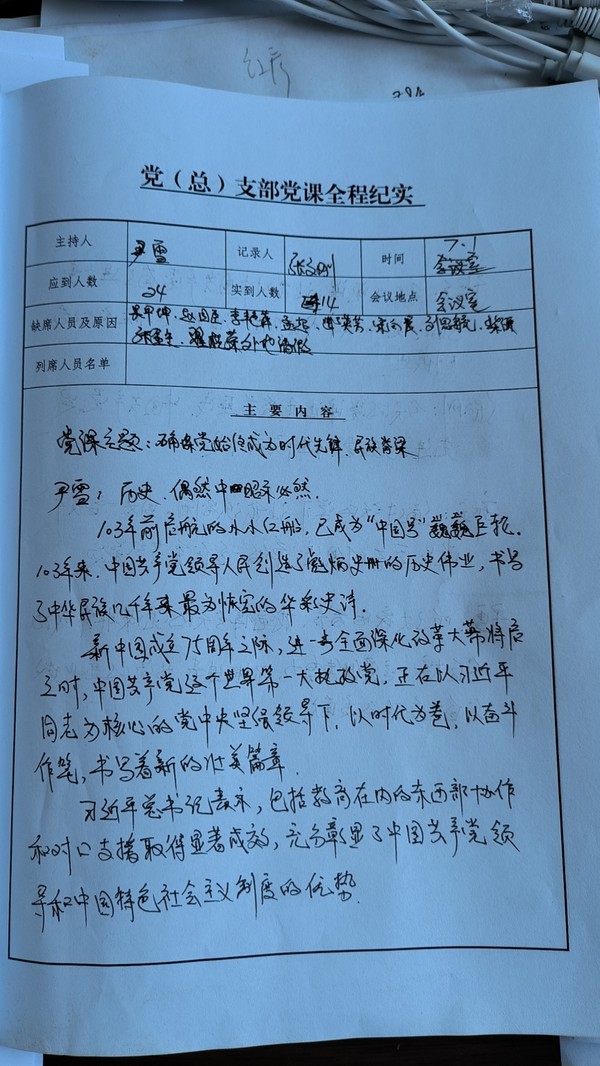 党（总）支部党课全程纪实
主持人 尹雪 记录人 时间 7.1
会议室
应到人数 24 实到人数 14 会议地点 会议室
缺席人员及原因
外地请假
列席人员名单
主要内容
党课主题：确保党始终成为时代先锋、民族脊梁
尹雪：历史，偶然中昭示必然.
103年前启航的小小红船，已成为“中国号”巍巍巨轮.
103年来，中国共产党领导人民创造了彪炳史册的历史伟业，书写
了中华民族几千年来最为恢宏的华彩史诗.
新中国成立75周年之际，进一步全面深化改革大幕将启
之时，中国共产党这个世界第一大执政党，正在以习近平
同志为核心的党中央坚强领导下，以时代为卷，以奋斗
作笔，书写着新的壮美篇章.
习近平总书记表示，包括教育在内的东西部协作
和对口支援取得显著成效，充分彰显了中国共产党领
导和中国特色社会主义制度的优势.